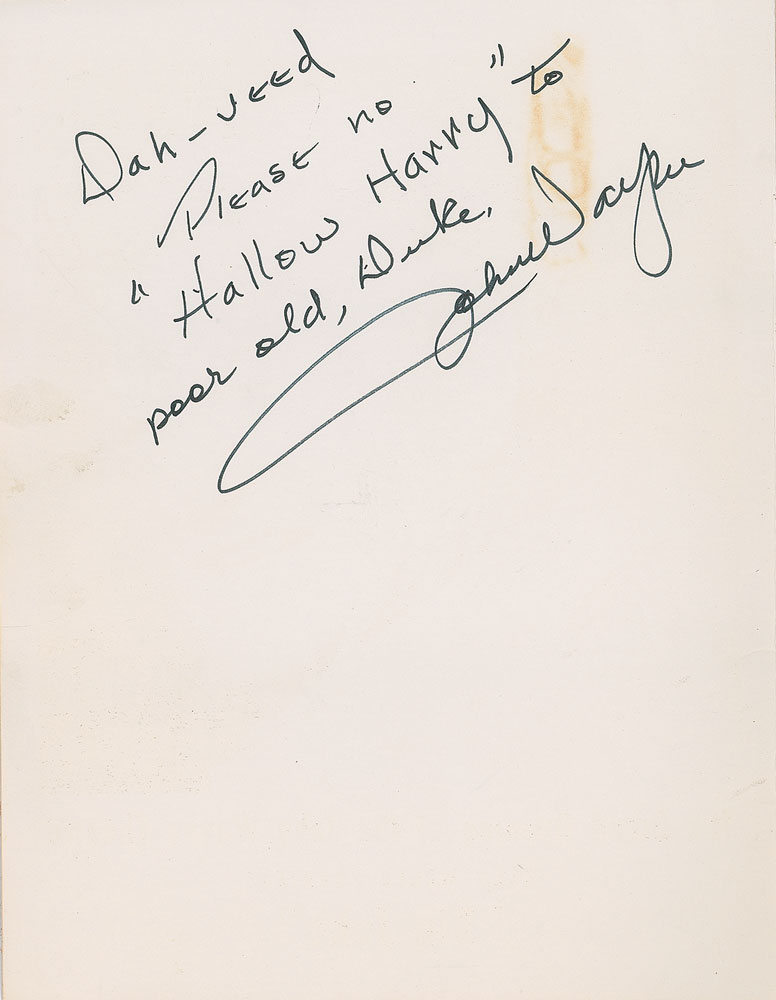 Dah-veed
Please no
"Hallow Harry" to
poor old, Duke,
John Wayne